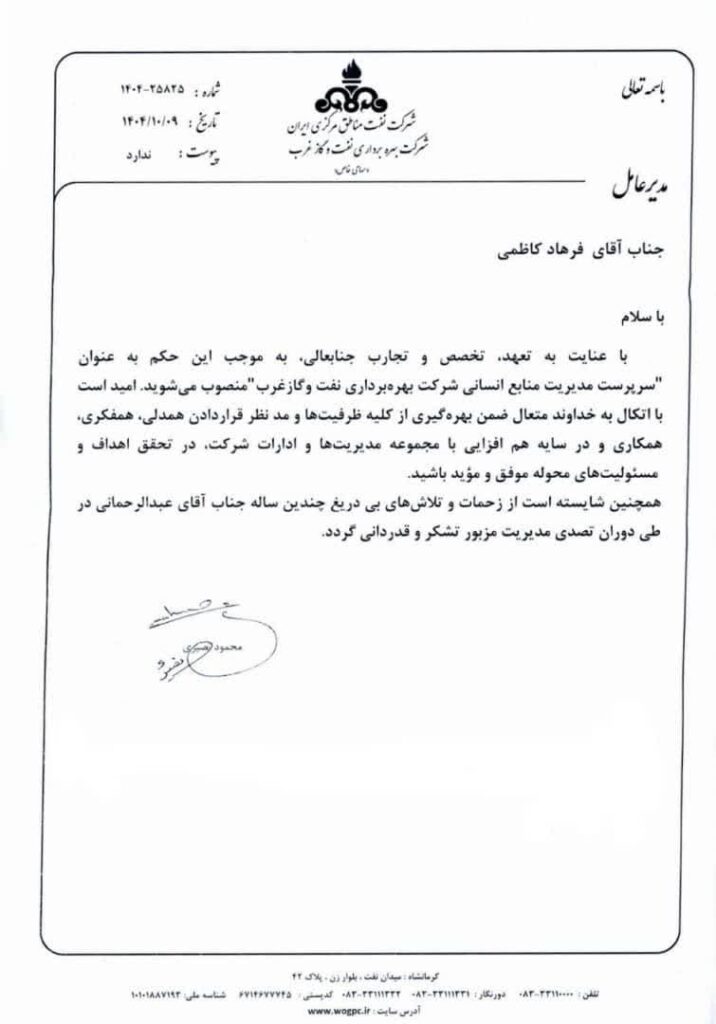 باسمه تعالی
شماره : ۱۴۰۴-۲۵۸۲۵
تاریخ : ۱۴۰۴/۱۰/۰۹
پیوست : ندارد
شرکت نفت مناطق مرکزی ایران
شرکت بهره برداری نفت و گاز غرب
(سهامی خاص)
مدیر عامل
جناب آقای فرهاد کاظمی
با سلام
با عنایت به تعهد، تخصص و تجارب جنابعالی، به موجب این حکم به عنوان
"سرپرست مدیریت منابع انسانی شرکت بهره‌برداری نفت وگازغرب"منصوب می‌شوید. امید است
با اتکال به خداوند متعال ضمن بهره‌گیری از کلیه ظرفیت‌ها و مد نظر قراردادن همدلی، همفکری،
همکاری و در سایه هم افزایی با مجموعه مدیریت‌ها و ادارات شرکت، در تحقق اهداف و
مسئولیت‌های محوله موفق و مؤید باشید.
همچنین شایسته است از زحمات و تلاش‌های بی دریغ چندین ساله جناب آقای عبدالرحمانی در
طی دوران تصدی مدیریت مزبور تشکر و قدردانی گردد.
محمود نصیری
کرمانشاه : میدان نفت ، بلوار زن ، پلاک ۴۲
تلفن : ۳۳۱۱۰۰۰۰-۰۸۳ دورنگار : ۳۳۱۱۱۳۳۱-۰۸۳ ۳۳۱۱۱۳۳۲-۰۸۳ کدپستی : ۶۷۱۴۶۷۷۷۴۵ شناسه ملی: ۱۰۱۰۱۸۸۷۱۹۳
آدرس سایت : www.wogpc.ir